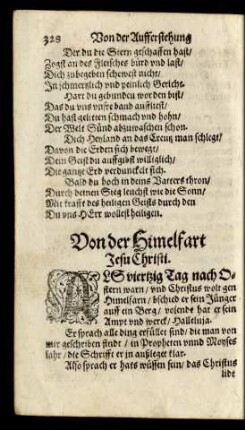 328 Von der Aufferstehung
Der du die Stern geschaffen hast/
Zogst an des Fleisches bürd vnd last/
Dich zubegeben schewest nicht/
In schmertzlich vnd peinlich Gericht.
Hart du gebunden worden bist/
Das du vns vnsre band aufflöst/
Du hast gelitten schmach vnd hohn/
Der Welt Sünd abzuwaschen schon.
Dich Heyland an das Creutz man schlegt/
Davon die Erden sich bewegt/
Dein Geist du auffgibst williglich/
Die gantze Erd verdunckelt sich.
Bald du hoch in deins Vatters thron/
Durch deinen Sieg leuchst wie die Sonn/
Mit krafft des heiligen Geists durch den
Du vns HErr wollest heiligen.
Von der Himelfart
Jesu Christi.
ALS viertzig Tag nach O-
stern warn/ vnd Christus wolt gen
Himelfarn/ bschied er sein Jünger
auff ein Berg/ volendt hat er sein
Ampt vnd werck/ Halleluja.
Er sprach alle ding erfüllet sind/ die man von
mir geschrieben findt/ in Propheten vnnd Moyses
lahr/ die Schrifft er in außleget klar.
Also sprach er hats müssen sein/ das Christus
lidt